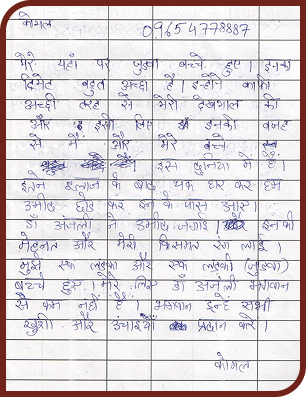 कोमल 09654778887
मेरे यहाँ पर जुड़वा बच्चे हुए । इनकी
टिमेट बहुत अच्छी है । इन्होने काफी
अच्छी तरह से मेरी देखभाल की
और इसी लिए इनकी वजह
से मैं और मेरे बच्चे
इस दुनिया में हैं ।
इतने इलाज के बाद थक हार कर हम
उमीद छोड़ कर इन के पास आए ।
डॉ अंजली ने उमीद जगाई इनकी
मेहनत और मेरी किसमत रंग लाई ।
मुझे एक लड़का और एक लड़की (जुड़वा)
बच्चे हुए । मेरे लिए डॉ अंजली भगवान
से कम नहीं है । भगवान इन्हें सभी
खुशी और उंचाईयाँ प्रदान करे ।
कोमल